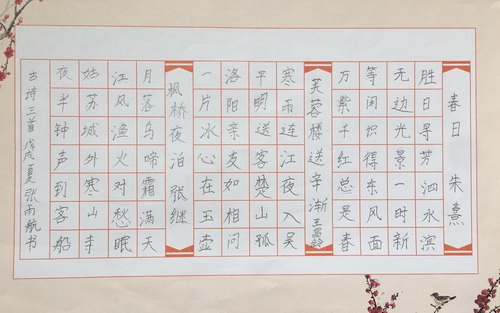 春日 朱熹
胜日寻芳泗水滨
无边光景一时新
等闲识得东风面
万紫千红总是春
芙蓉楼送辛渐 王昌龄
寒雨连江夜入吴
平明送客楚山孤
洛阳亲友如相问
一片冰心在玉壶
枫桥夜泊 张继
月落乌啼霜满天
江风渔火对愁眠
姑苏城外寒山寺
夜半钟声到客船
古诗三首 戊戌夏 张雨航书